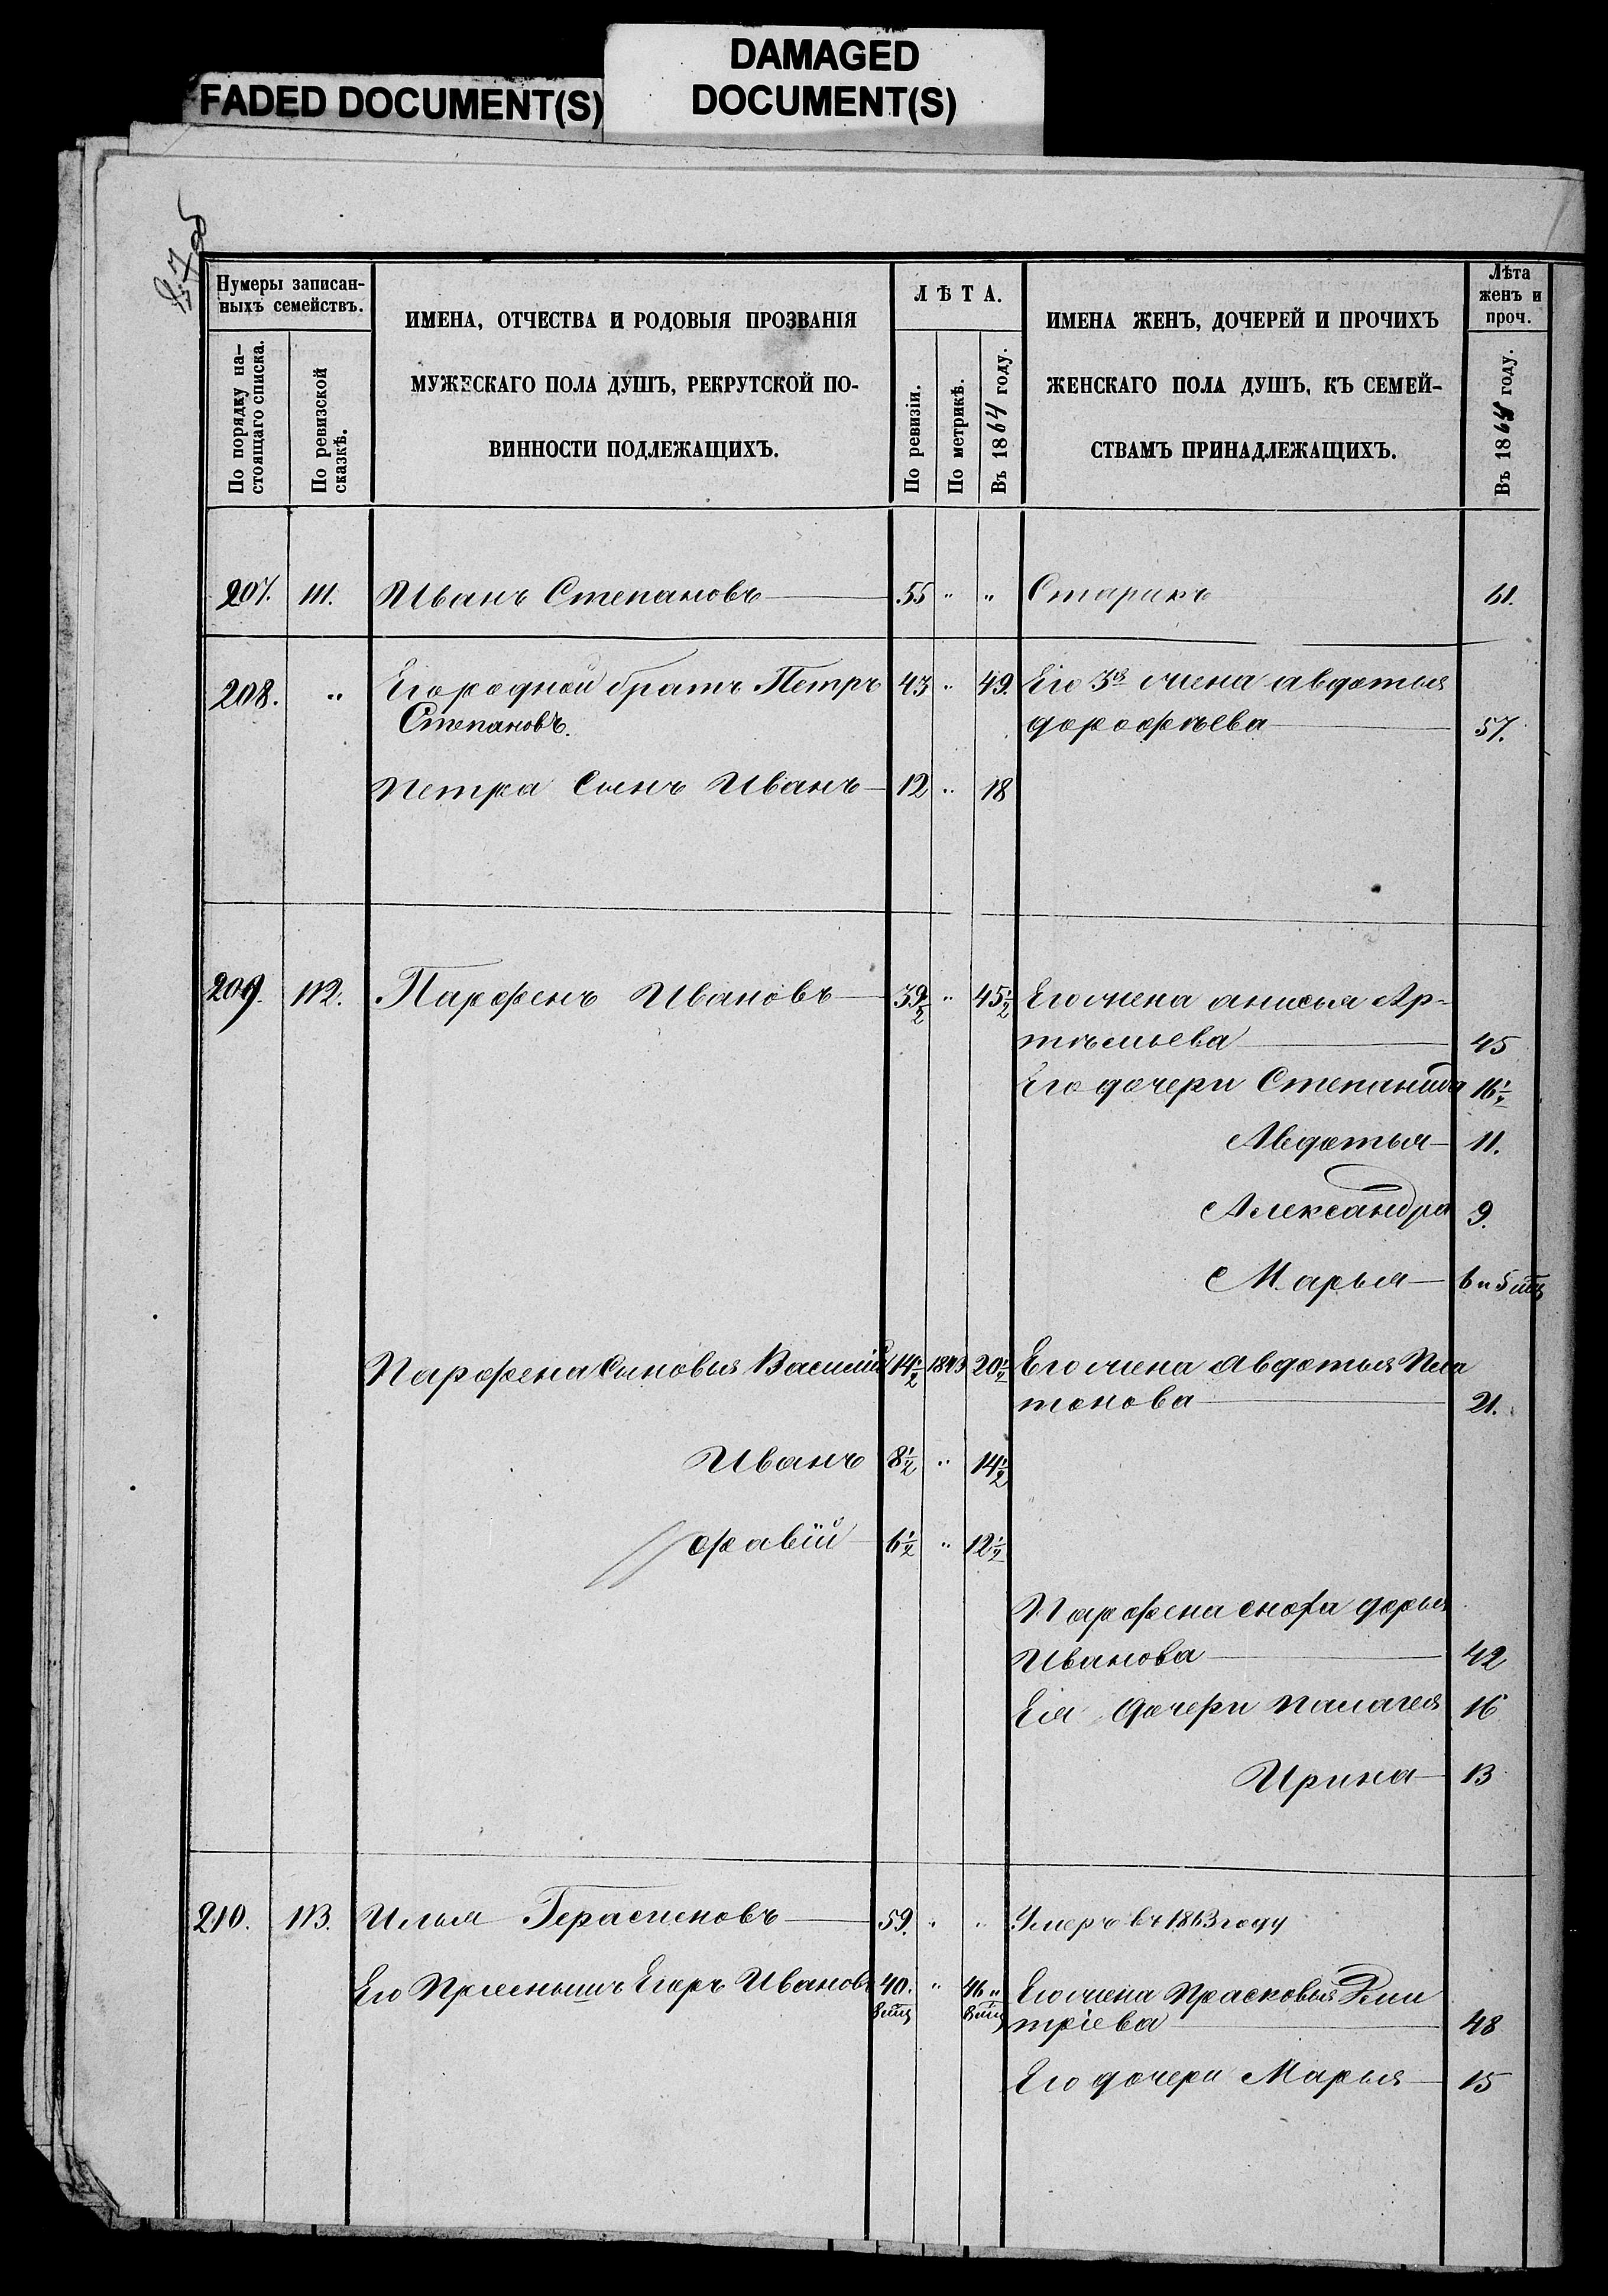 FADED DOCUMENT(S)
DAMAGED
DOCUMENT(S)
Нумеры записан-
ныхъ семействъ.
По порядку на-
стоящаго списка.
По ревизской
сказкѣ.
ИМЕНА, ОТЧЕСТВА И РОДОВЫЯ ПРОЗВАНІЯ
МУЖЕСКАГО ПОЛА ДУШЪ, РЕКРУТСКОЙ ПО-
ВИННОСТИ ПОДЛЕЖАЩИХЪ.
ЛѢТА.
По ревизіи.
По метрикѣ.
Въ 1864 году.
ИМЕНА ЖЕНЪ, ДОЧЕРЕЙ И ПРОЧИХЪ
ЖЕНСКАГО ПОЛА ДУШЪ, КЪ СЕМЕЙ-
СТВАМЪ ПРИНАДЛЕЖАЩИХЪ.
Лѣта
женъ и
проч.
Въ 1864 году.
207. 111. Иванъ Степановъ 55 " " Старикъ 61.
208. " Его родной братъ Петръ 43 " 49. Его 3я жена авдотья
Степановъ. дорофѣева 57.
Петра Сынъ Иванъ 12 " 18
209. 112. Парфенъ Ивановъ 39½ " 45½ Его жена анисья Ар-
тѣмьева 45
Его дочери Степанида 16½
Авдотья 11.
Александра 9.
Марья 6 и 5 мц
Парфена Сыновья Василій 14½ 1843 20½ Его жена авдотья Пла
тонова 21.
Иванъ 8½ " 14½
фавій 6½ " 12½
Парфена сноха дарья
Иванова 42
Ея дочери палагея 16
Ирина 13
210. 113. Илья Герасимовъ 59. " " Умеръ въ 1863 году
Его Премышъ Егоръ Ивановъ 40. " 46 " Его жена Прасковья Дми
8 мц 8 мц тріева 48
Его дочери Марья 15